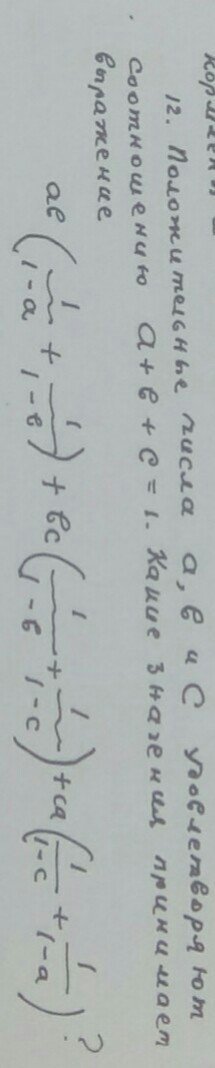 12. Положительные числа а, в и с удовлетворяют
соотношению а + в + с = 1. Какие значения принимает
выражение
ав (1/(1-а) + 1/(1-в)) + вс (1/(1-в) + 1/(1-с)) + са (1/(1-с) + 1/(1-а)) ?